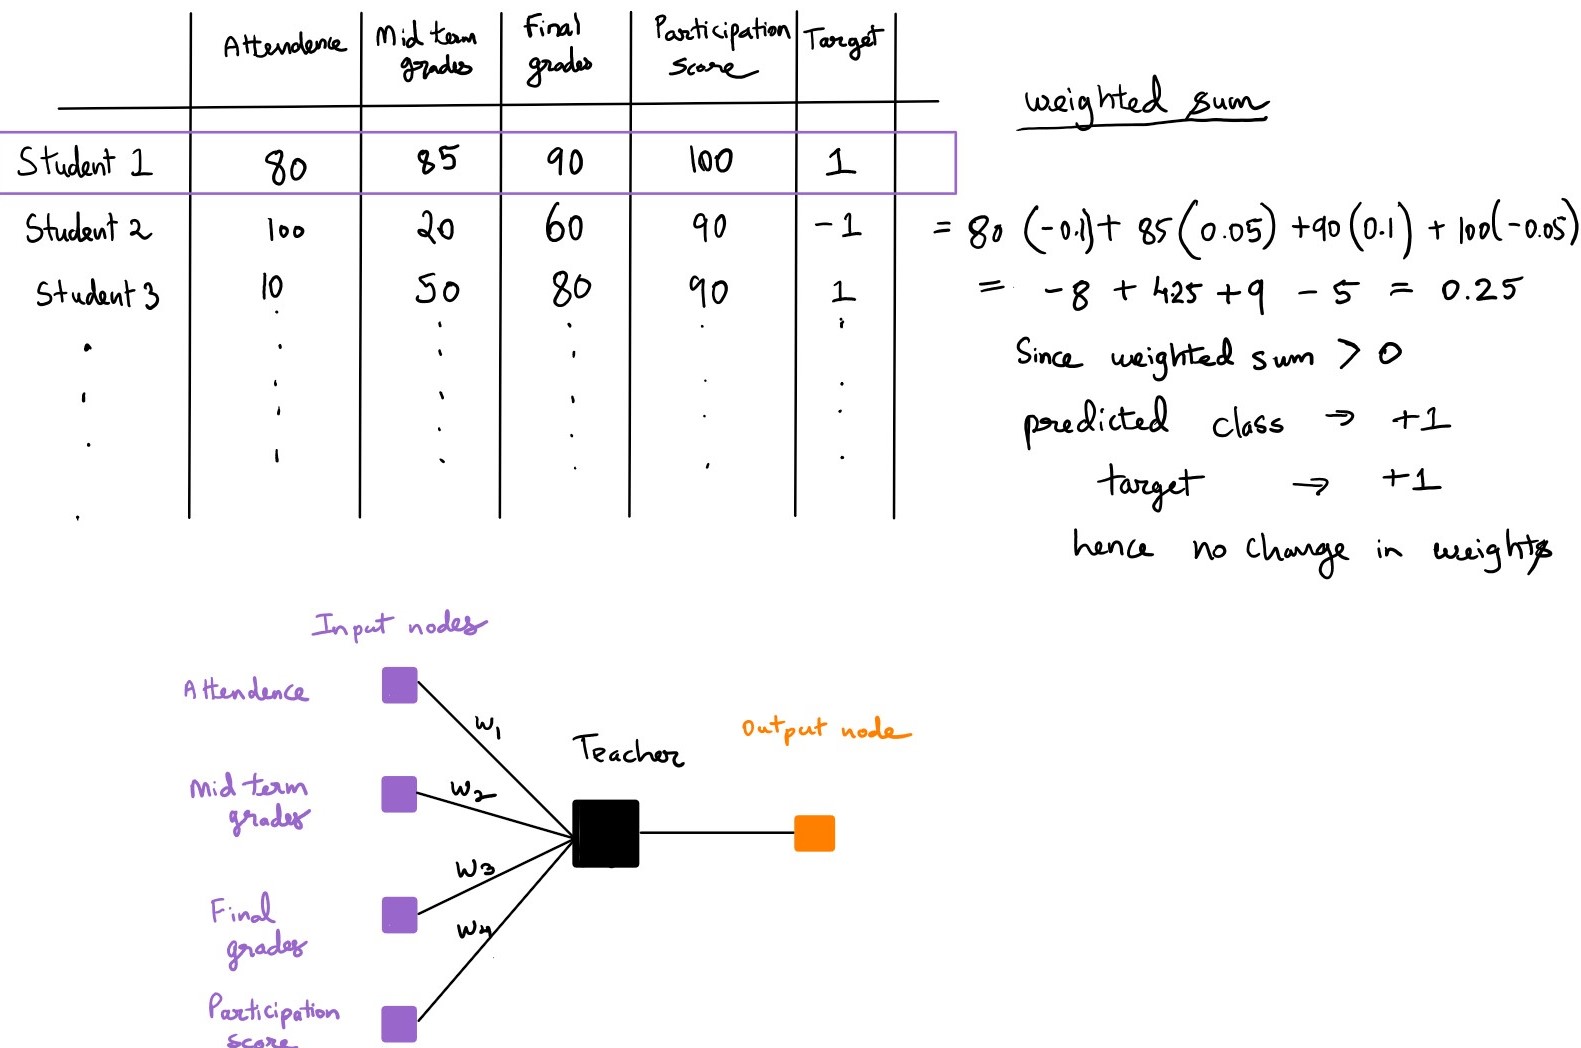 Attendence Mid term grades Final grades Participation score Target
Student 1 80 85 90 100 1
Student 2 100 20 60 90 -1
Student 3 10 50 80 90 1
weighted sum
= 80 (-0.1) + 85 (0.05) + 90 (0.1) + 100 (-0.05)
= -8 + 4.25 + 9 - 5 = 0.25
Since weighted sum > 0
predicted class → +1
target → +1
hence no change in weights
Input nodes
Attendence
W1
Mid term
grades
W2
Final
grades
W3
Participation
score
W4
Teacher
Output node